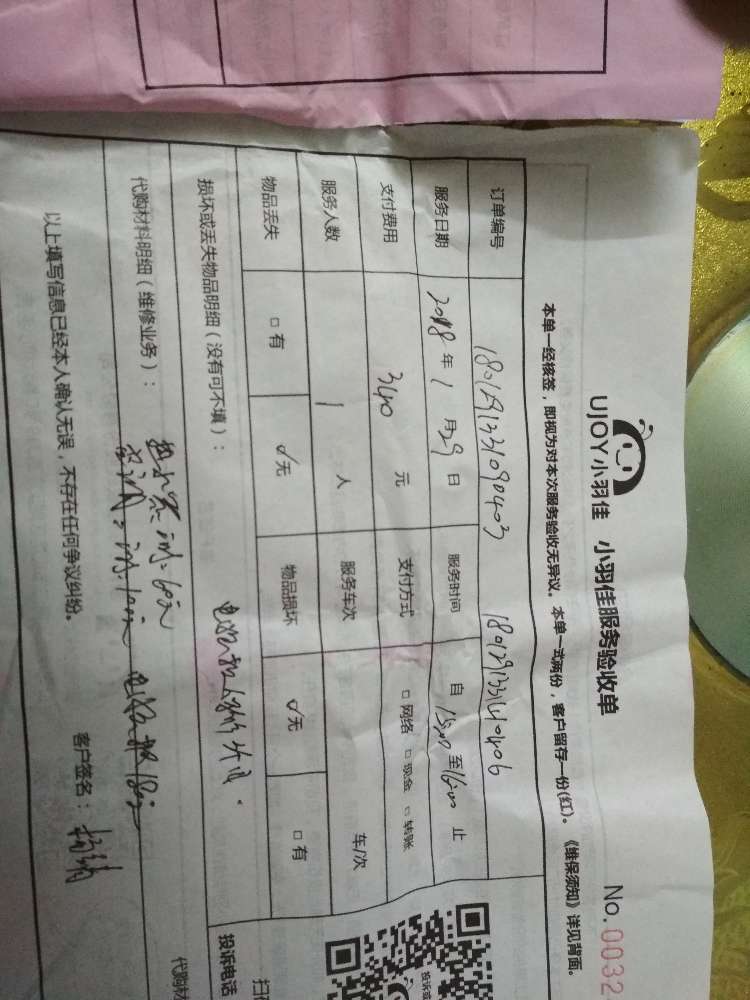 UJOY小羽佳 小羽佳服务验收单 No.0032
本单一经核签，即视为对本次服务验收无异议。本单一式两份，客户留存一份(红)。《维保须知》详见背面。
订单编号 1801291331090403 1801291331440406
服务日期 2018年1月29日 服务时间 自15:00至16:00止
支付费用 340元 支付方式 □网络 □现金 □转账
服务人数 1人 服务车次 车/次
物品丢失 □有 √无 物品损坏 √无 □有
损坏或丢失物品明细（没有可不填）：
代购材料明细（维修业务）：
以上填写信息已经本人确认无误，不存在任何争议纠纷。 客户签名：
投诉电话
代购材